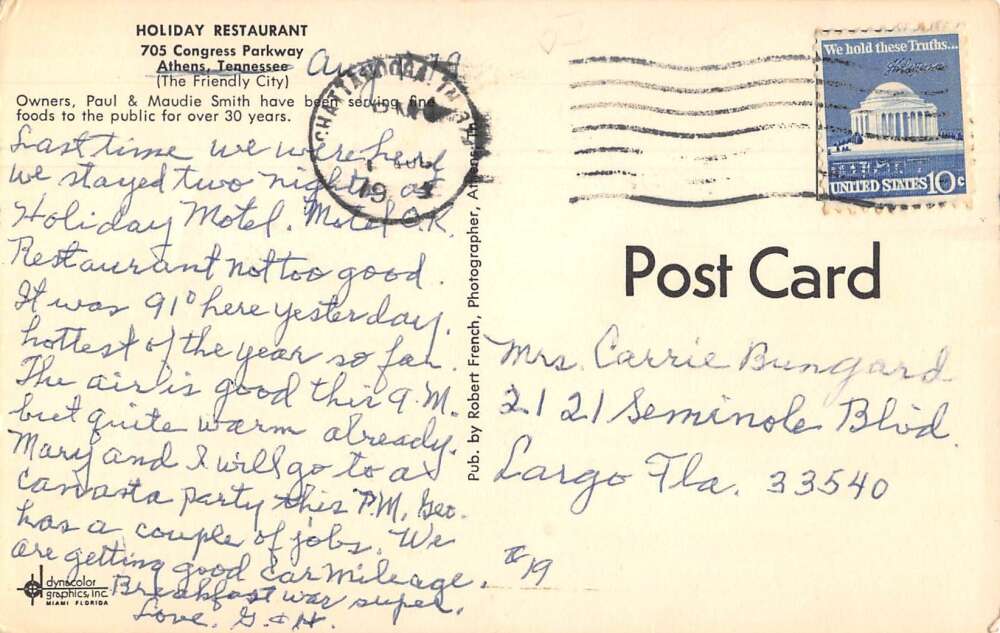 HOLIDAY RESTAURANT
705 Congress Parkway
Athens, Tennessee
(The Friendly City)
Owners, Paul & Maudie Smith have been serving fine
foods to the public for over 30 years.
Last time we were here
we stayed two nights at
Holiday Motel. Motel O.K.
Restaurant not too good.
It was 91° here yesterday.
hottest of the year so far.
The air is good this A.M.
but quite warm already.
Mary and I will go to a
canasta party this P.M. Geo.
has a couple of jobs. We
are getting good car mileage.
Breakfast was super.
Love. G. & H.
dynacolor
graphics, inc.
MIAMI FLORIDA
Pub. by Robert French, Photographer, Athens,
CHATTANOOGA, TN
PM
19
We hold these Truths...
UNITED STATES 10c
Post Card
Mrs. Carrie Bungard
2121 Seminole Blvd.
Largo Fla. 33540
#19